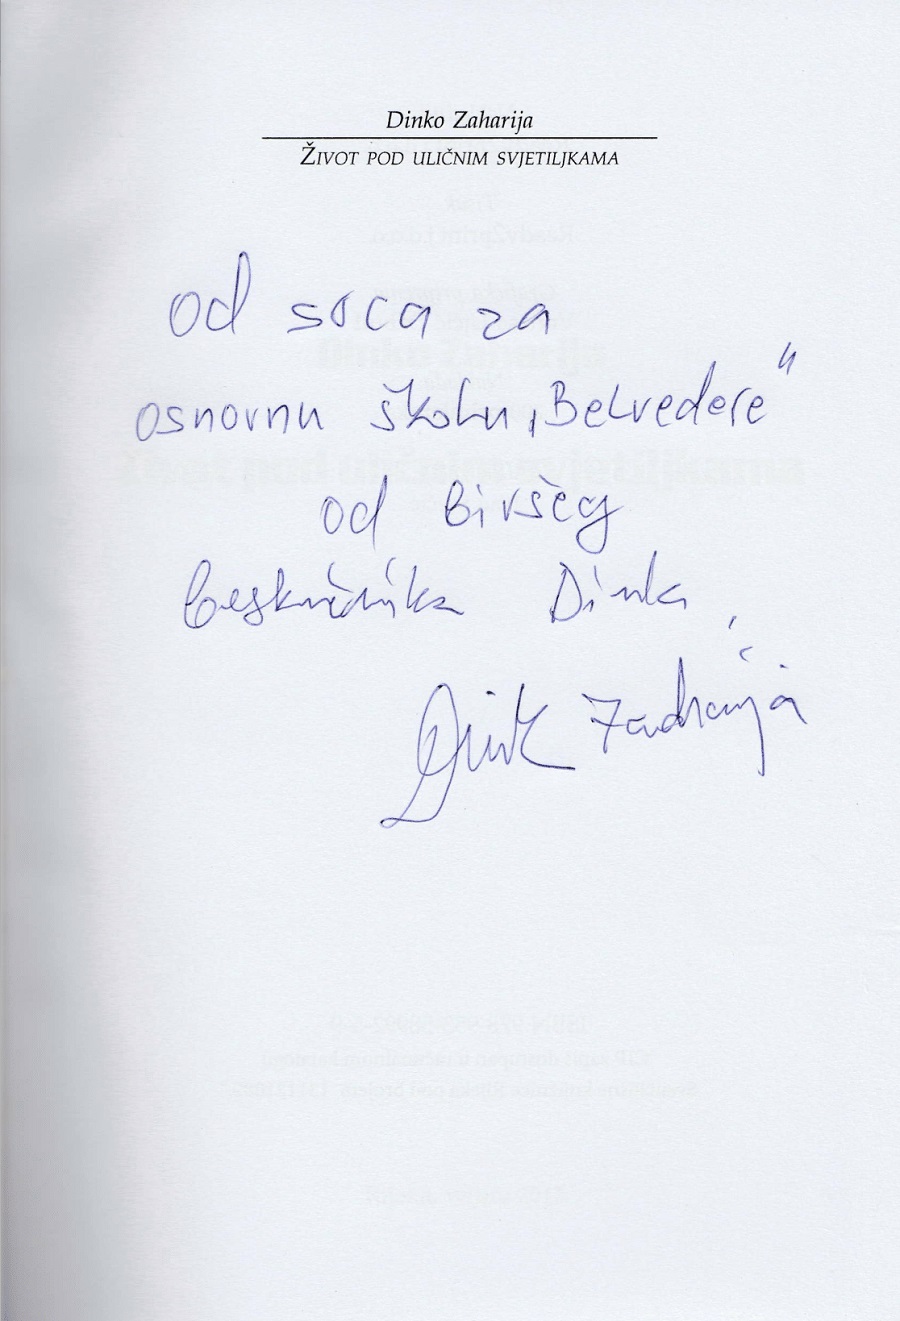 Dinko Zaharija
ŽIVOT POD ULIČNIM SVJETILJKAMA
od srca za
osnovnu školu „Belvedere"
od bivšeg
beskućnika Dinka,
Dinko Zaharija